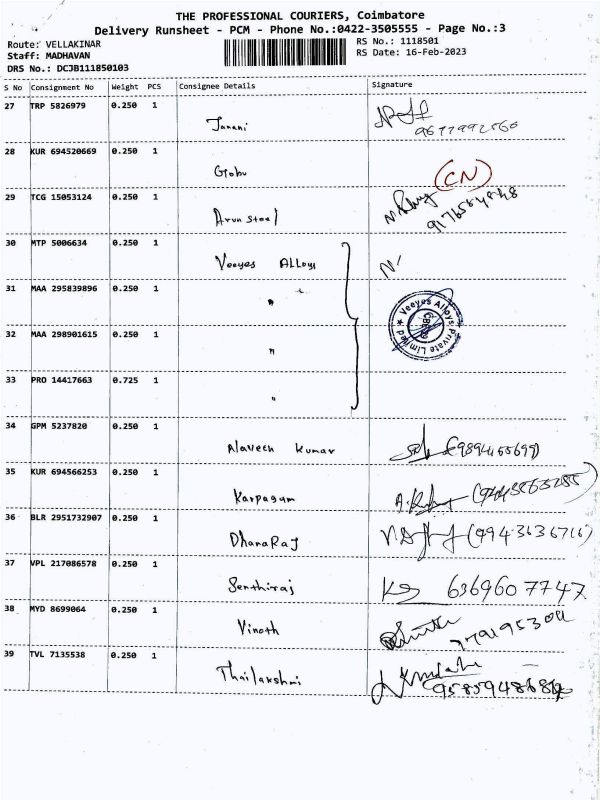 THE PROFESSIONAL COURIERS, Coimbatore
Delivery Runsheet - PCM - Phone No.:0422-3505555 - Page No.:3
Route: VELLAKINAR RS No.: 1118501
Staff: MADHAVAN RS Date: 16-Feb-2023
DRS No.: DCJB111850103
S No Consignment No Weight PCS Consignee Details Signature
27 TRP 5826979 0.250 1
Janani
28 KUR 694520669 0.250 1
Globu (CN)
29 TCG 15053124 0.250 1
Arun Steel
30 MTP 5006634 0.250 1
Veeyes Alloys
31 MAA 295839896 0.250 1
"
Veeyes Alloys Private Limited
32 MAA 298901615 0.250 1
"
33 PRO 14417663 0.725 1
"
34 GPM 5237820 0.250 1
Naveen Kumar (9894155699)
35 KUR 694566253 0.250 1
Karpagam
36 BLR 2951732907 0.250 1
DhanaRaj (9943636716)
37 VPL 217086578 0.250 1
Senthiraj 6369607747
38 MYD 8699064 0.250 1
Vinoth
39 TVL 7135538 0.250 1
Thailakshmi